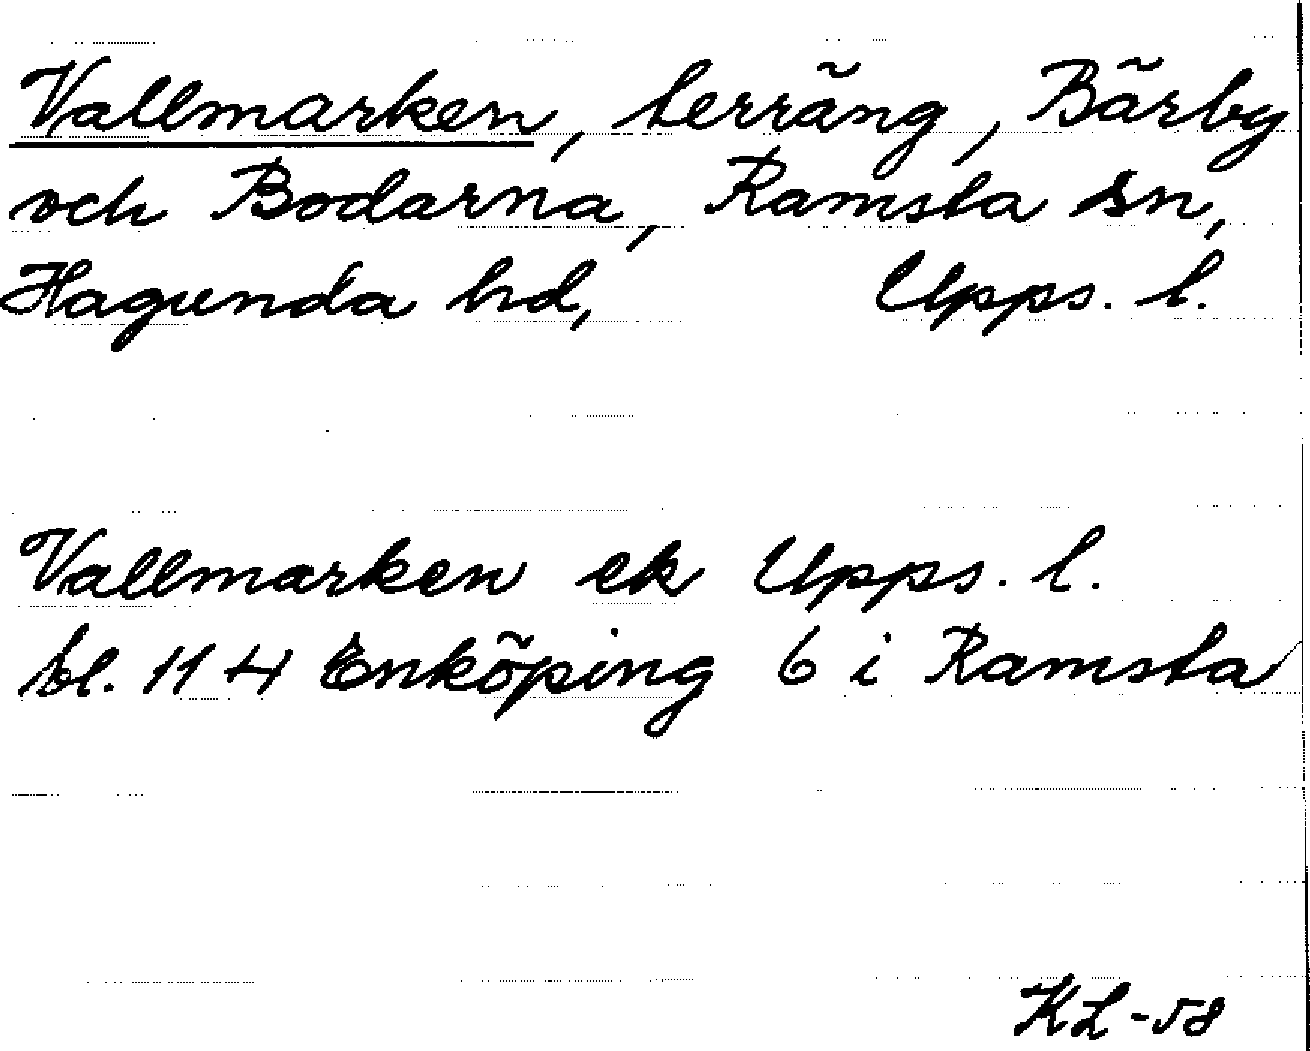 Vallmarken, terräng, Bärby
och Bodarna, Ramsta sn,
Hagunda hd, Upps. l.
Vallmarken ek Upps. l.
bl. 114 Enköping 6 i Ramsta
KL-58